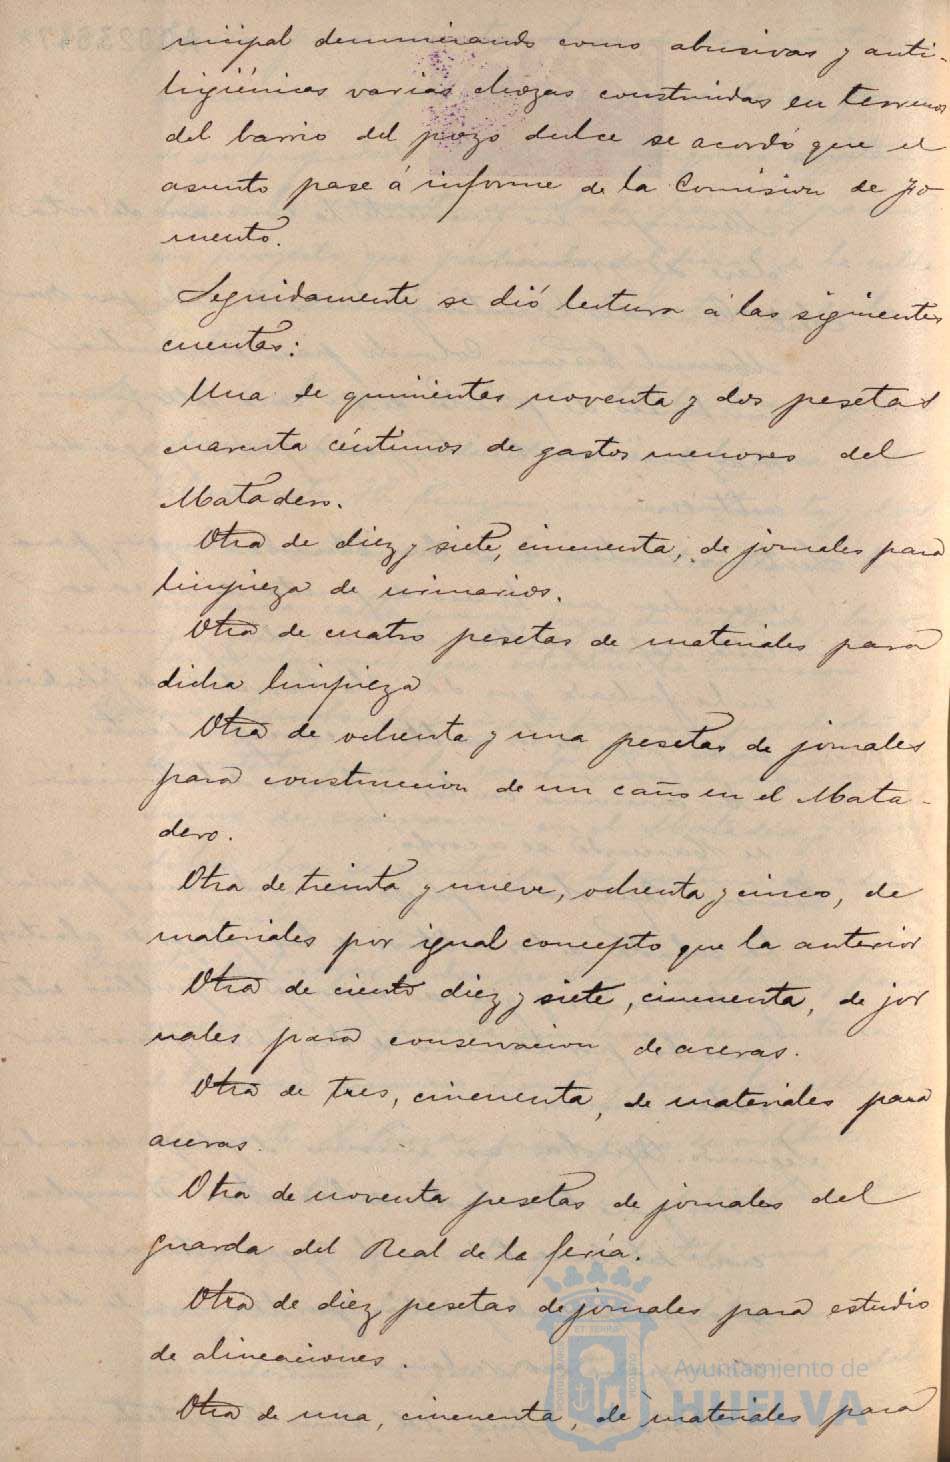 nicipal denunciando como abusivas y anti-
higiénicas varias chozas construidas en terrenos
del barrio del pozo dulce se acordó que el
asunto pase á informe de la Comision de Fo-
mento.
Seguidamente se dió lectura á las siguientes
cuentas:
Una de quinientas noventa y dos pesetas
cuarenta céntimos de gastos menores del
Matadero.
Otra de diez y siete, cincuenta, de jornales para
limpieza de urinarios.
Otra de cuatro pesetas de materiales para
dicha limpieza
Otra de ochenta y una pesetas de jornales
para construccion de un caño en el Mata-
dero.
Otra de treinta y nueve, ochenta y cinco, de
materiales por igual concepto que la anterior
Otra de ciento diez y siete, cincuenta, de jor
nales para conservacion de aceras.
Otra de tres, cincuenta, de materiales para
aceras.
Otra de noventa pesetas de jornales del
guarda del Real de la feria.
Otra de diez pesetas de jornales para estudio
de alineaciones.
Otra de una, cincuenta, de materiales para
Ayuntamiento de
HUELVA